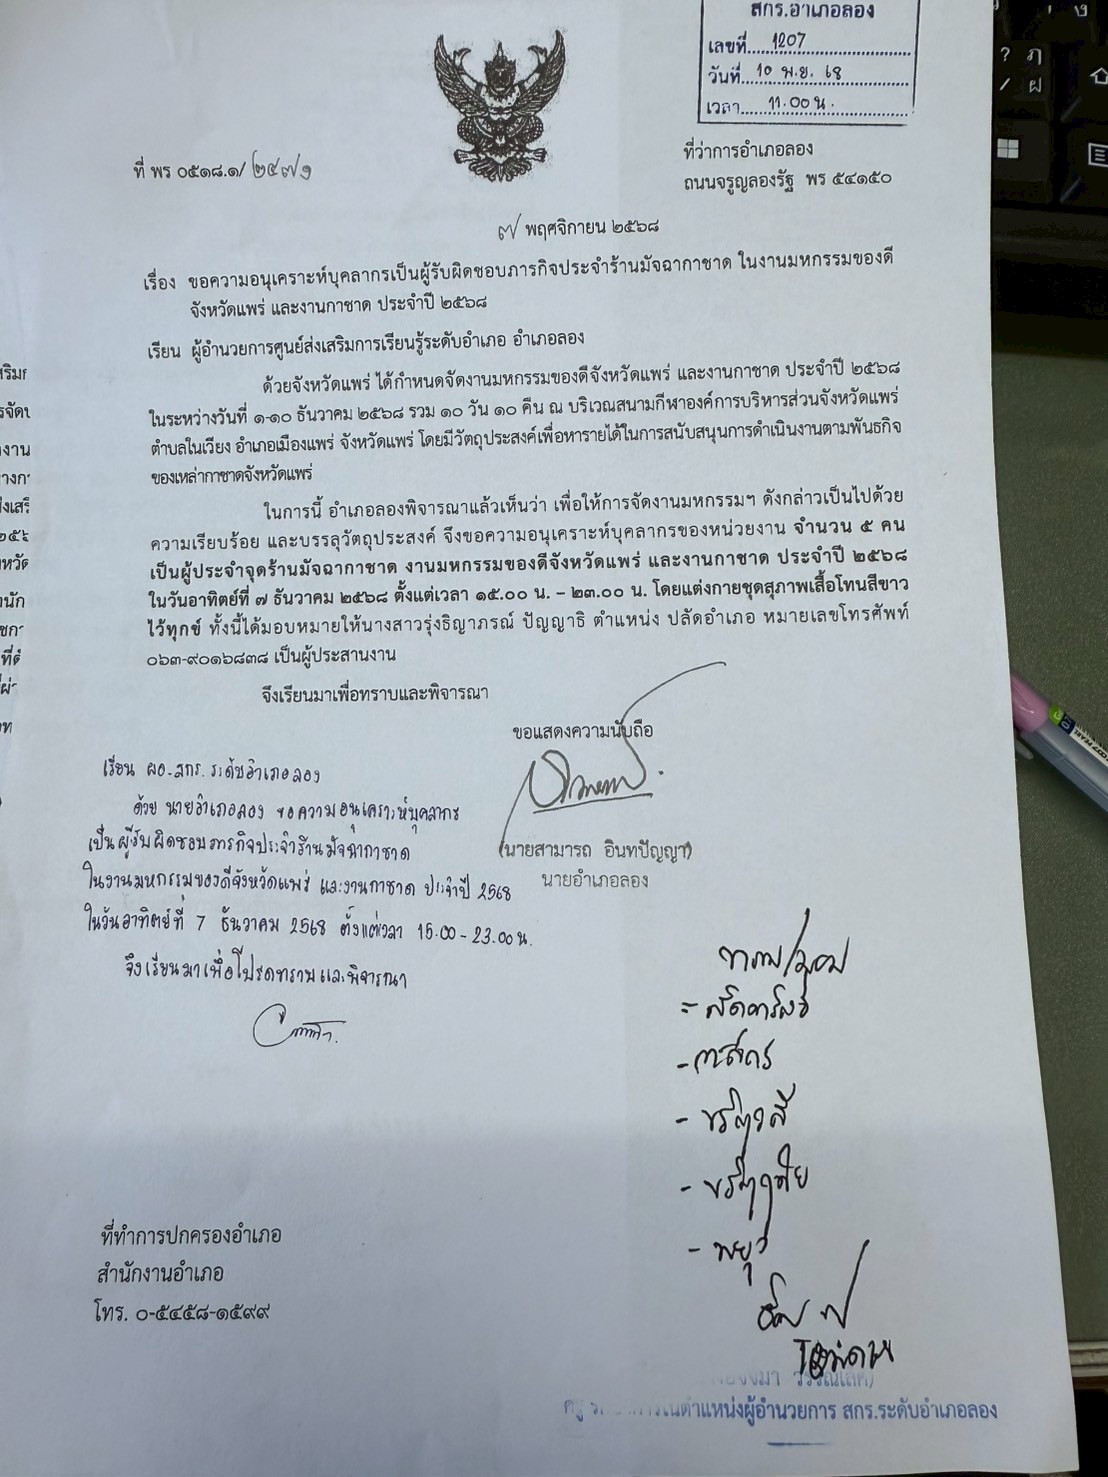 สกร.อำเภอลอง
เลขที่ 1207
วันที่ 10 พ.ย. 68
เวลา 11.00 น.
ที่ พร ๐๕๑๘.๑/๒๔๗๑
ที่ว่าการอำเภอลอง
ถนนจรูญลองรัฐ พร ๕๔๑๕๐
๗ พฤศจิกายน ๒๕๖๘
เรื่อง ขอความอนุเคราะห์บุคลากรเป็นผู้รับผิดชอบภารกิจประจำร้านมัจฉากาชาด ในงานมหกรรมของดี
จังหวัดแพร่ และงานกาชาด ประจำปี ๒๕๖๘
เรียน ผู้อำนวยการศูนย์ส่งเสริมการเรียนรู้ระดับอำเภอ อำเภอลอง
ด้วยจังหวัดแพร่ ได้กำหนดจัดงานมหกรรมของดีจังหวัดแพร่ และงานกาชาด ประจำปี ๒๕๖๘
ในระหว่างวันที่ ๑-๑๐ ธันวาคม ๒๕๖๘ รวม ๑๐ วัน ๑๐ คืน ณ บริเวณสนามกีฬาองค์การบริหารส่วนจังหวัดแพร่
ตำบลในเวียง อำเภอเมืองแพร่ จังหวัดแพร่ โดยมีวัตถุประสงค์เพื่อหารายได้ในการสนับสนุนการดำเนินงานตามพันธกิจ
ของเหล่ากาชาดจังหวัดแพร่
ในการนี้ อำเภอลองพิจารณาแล้วเห็นว่า เพื่อให้การจัดงานมหกรรมฯ ดังกล่าวเป็นไปด้วย
ความเรียบร้อย และบรรลุวัตถุประสงค์ จึงขอความอนุเคราะห์บุคลากรของหน่วยงาน จำนวน ๕ คน
เป็นผู้ประจำจุดร้านมัจฉากาชาด งานมหกรรมของดีจังหวัดแพร่ และงานกาชาด ประจำปี ๒๕๖๘
ในวันอาทิตย์ที่ ๗ ธันวาคม ๒๕๖๘ ตั้งแต่เวลา ๑๕.๐๐ น. – ๒๓.๐๐ น. โดยแต่งกายชุดสุภาพเสื้อโทนสีขาว
ไว้ทุกข์ ทั้งนี้ได้มอบหมายให้นางสาวรุ่งธิญาภรณ์ ปัญญาธิ ตำแหน่ง ปลัดอำเภอ หมายเลขโทรศัพท์
๐๖๓-๙๐๑๖๘๓๘ เป็นผู้ประสานงาน
จึงเรียนมาเพื่อทราบและพิจารณา
ขอแสดงความนับถือ
(นายสามารถ อินทปัญญา)
นายอำเภอลอง
เรียน ผอ.สกร. ระดับอำเภอลอง
ด้วย นายอำเภอลอง ขอความอนุเคราะห์บุคลากร
เป็นผู้รับผิดชอบภารกิจประจำร้านมัจฉากาชาด
ในงานมหกรรมของดีจังหวัดแพร่ และงานกาชาด ประจำปี 2568
ในวันอาทิตย์ที่ 7 ธันวาคม 2568 ตั้งแต่เวลา 15.00 - 23.00 น.
จึงเรียนมาเพื่อโปรดทราบและพิจารณา
ทราบ/มอบ
ที่ทำการปกครองอำเภอ
สำนักงานอำเภอ
โทร. ๐-๕๔๕๘-๑๕๙๙
ในตำแหน่งผู้อำนวยการ สกร.ระดับอำเภอลอง